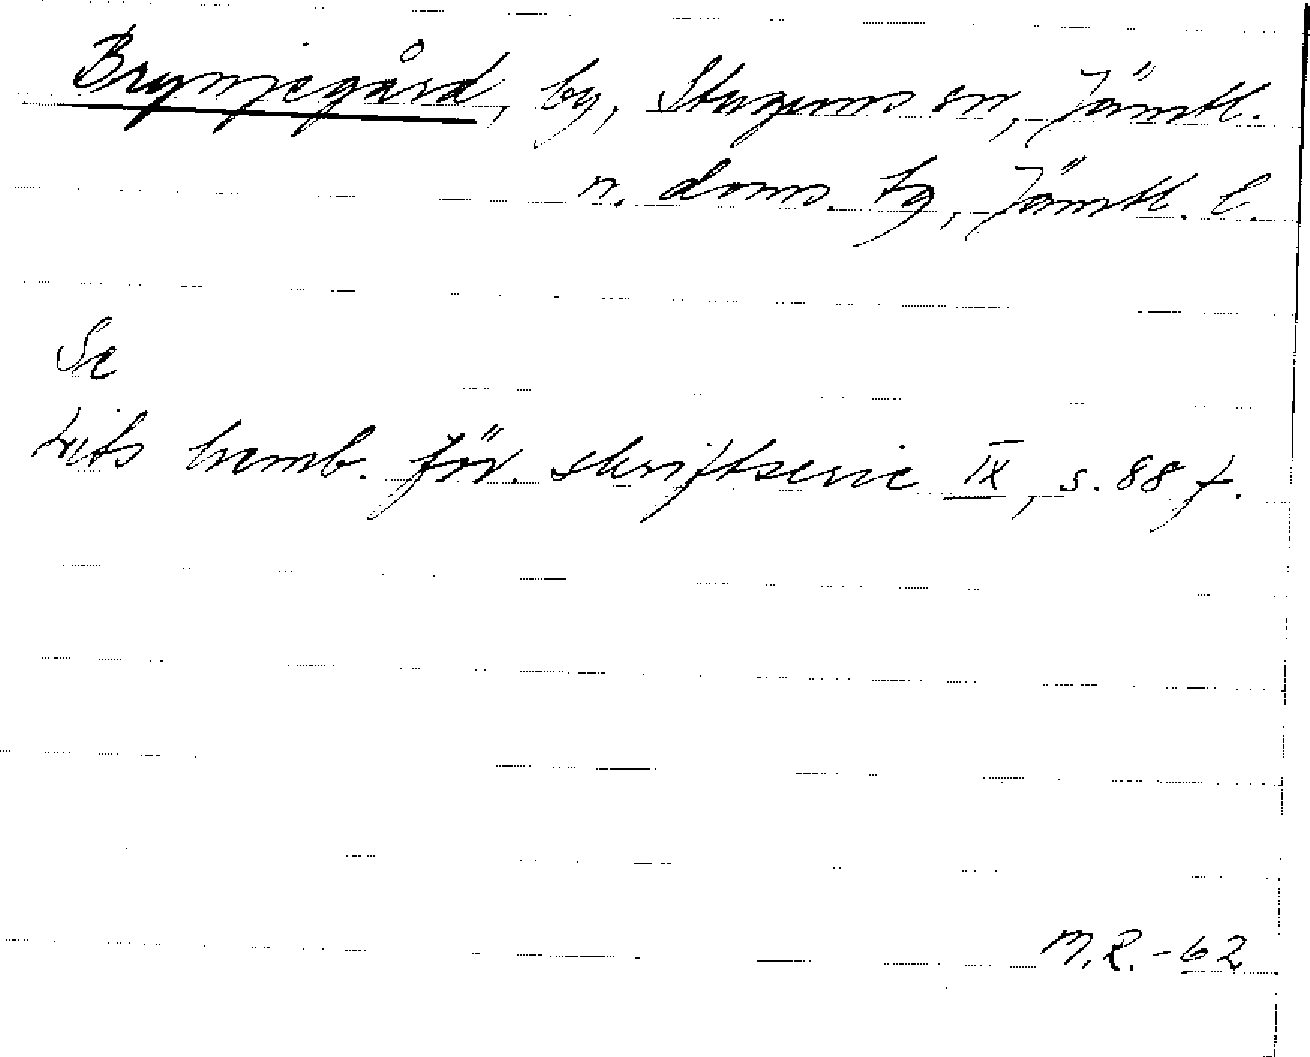 Brynjegård, by, Stuguns sn, Jämtl.
n. doms. tg, Jämtl. l.
Se
Lits hemb. för. skriftserie IX, s. 88 f.
M.R. -62